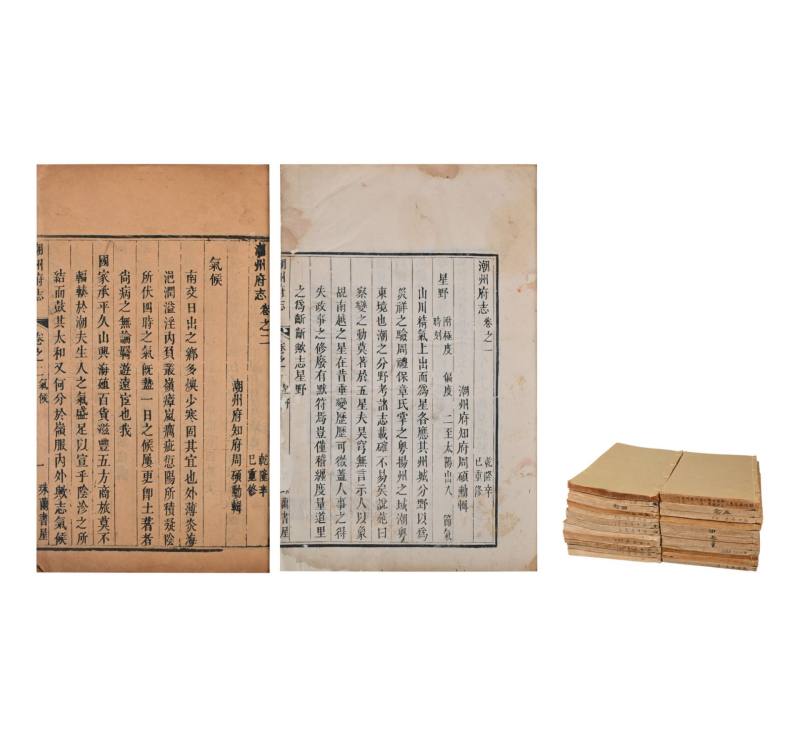 潮州府志 卷之二
乾隆辛
巳重修
潮州府知府周碩勳輯
氣候
南交日出之鄉多燠少寒固其宜也外薄炎海
浥潤溢淫內負叢嶺瘴嵐癘疵愆陽所積凝陰
所伏四時之氣旣盭一日之候屢更卽土著者
尙病之無論羇遊遠宦也我
國家承平久山輿海百貨溢豐五方商旅莫不
輻輳於潮夫生人之氣盛足以宣乎陰沴之所
結而鼓其太和又何分於嶺服內外歟志氣候
潮州府志 卷之二 氣候 一 珠蘭書屋
潮州府志 卷之一
乾隆辛
巳重修
潮州府知府周碩勳輯
星野 附極度 偏度 二至太陽出入 節氣
時刻
山川精氣上出而爲星各應其州城分野以爲
災祥之驗周禮保章氏掌之粵揚州之域潮粵
東境也潮之分野考諸志載確不易矣說苑曰
察變之動莫著於五星夫昊穹無言示人以象
故南越之星在昔垂變歷歷可徵蓋人事之得
失政事之修廢有默符焉豈僅稽纏度量道里
之爲斷斷歟志星野
潮州府志 卷之一 星野 一 珠蘭書屋